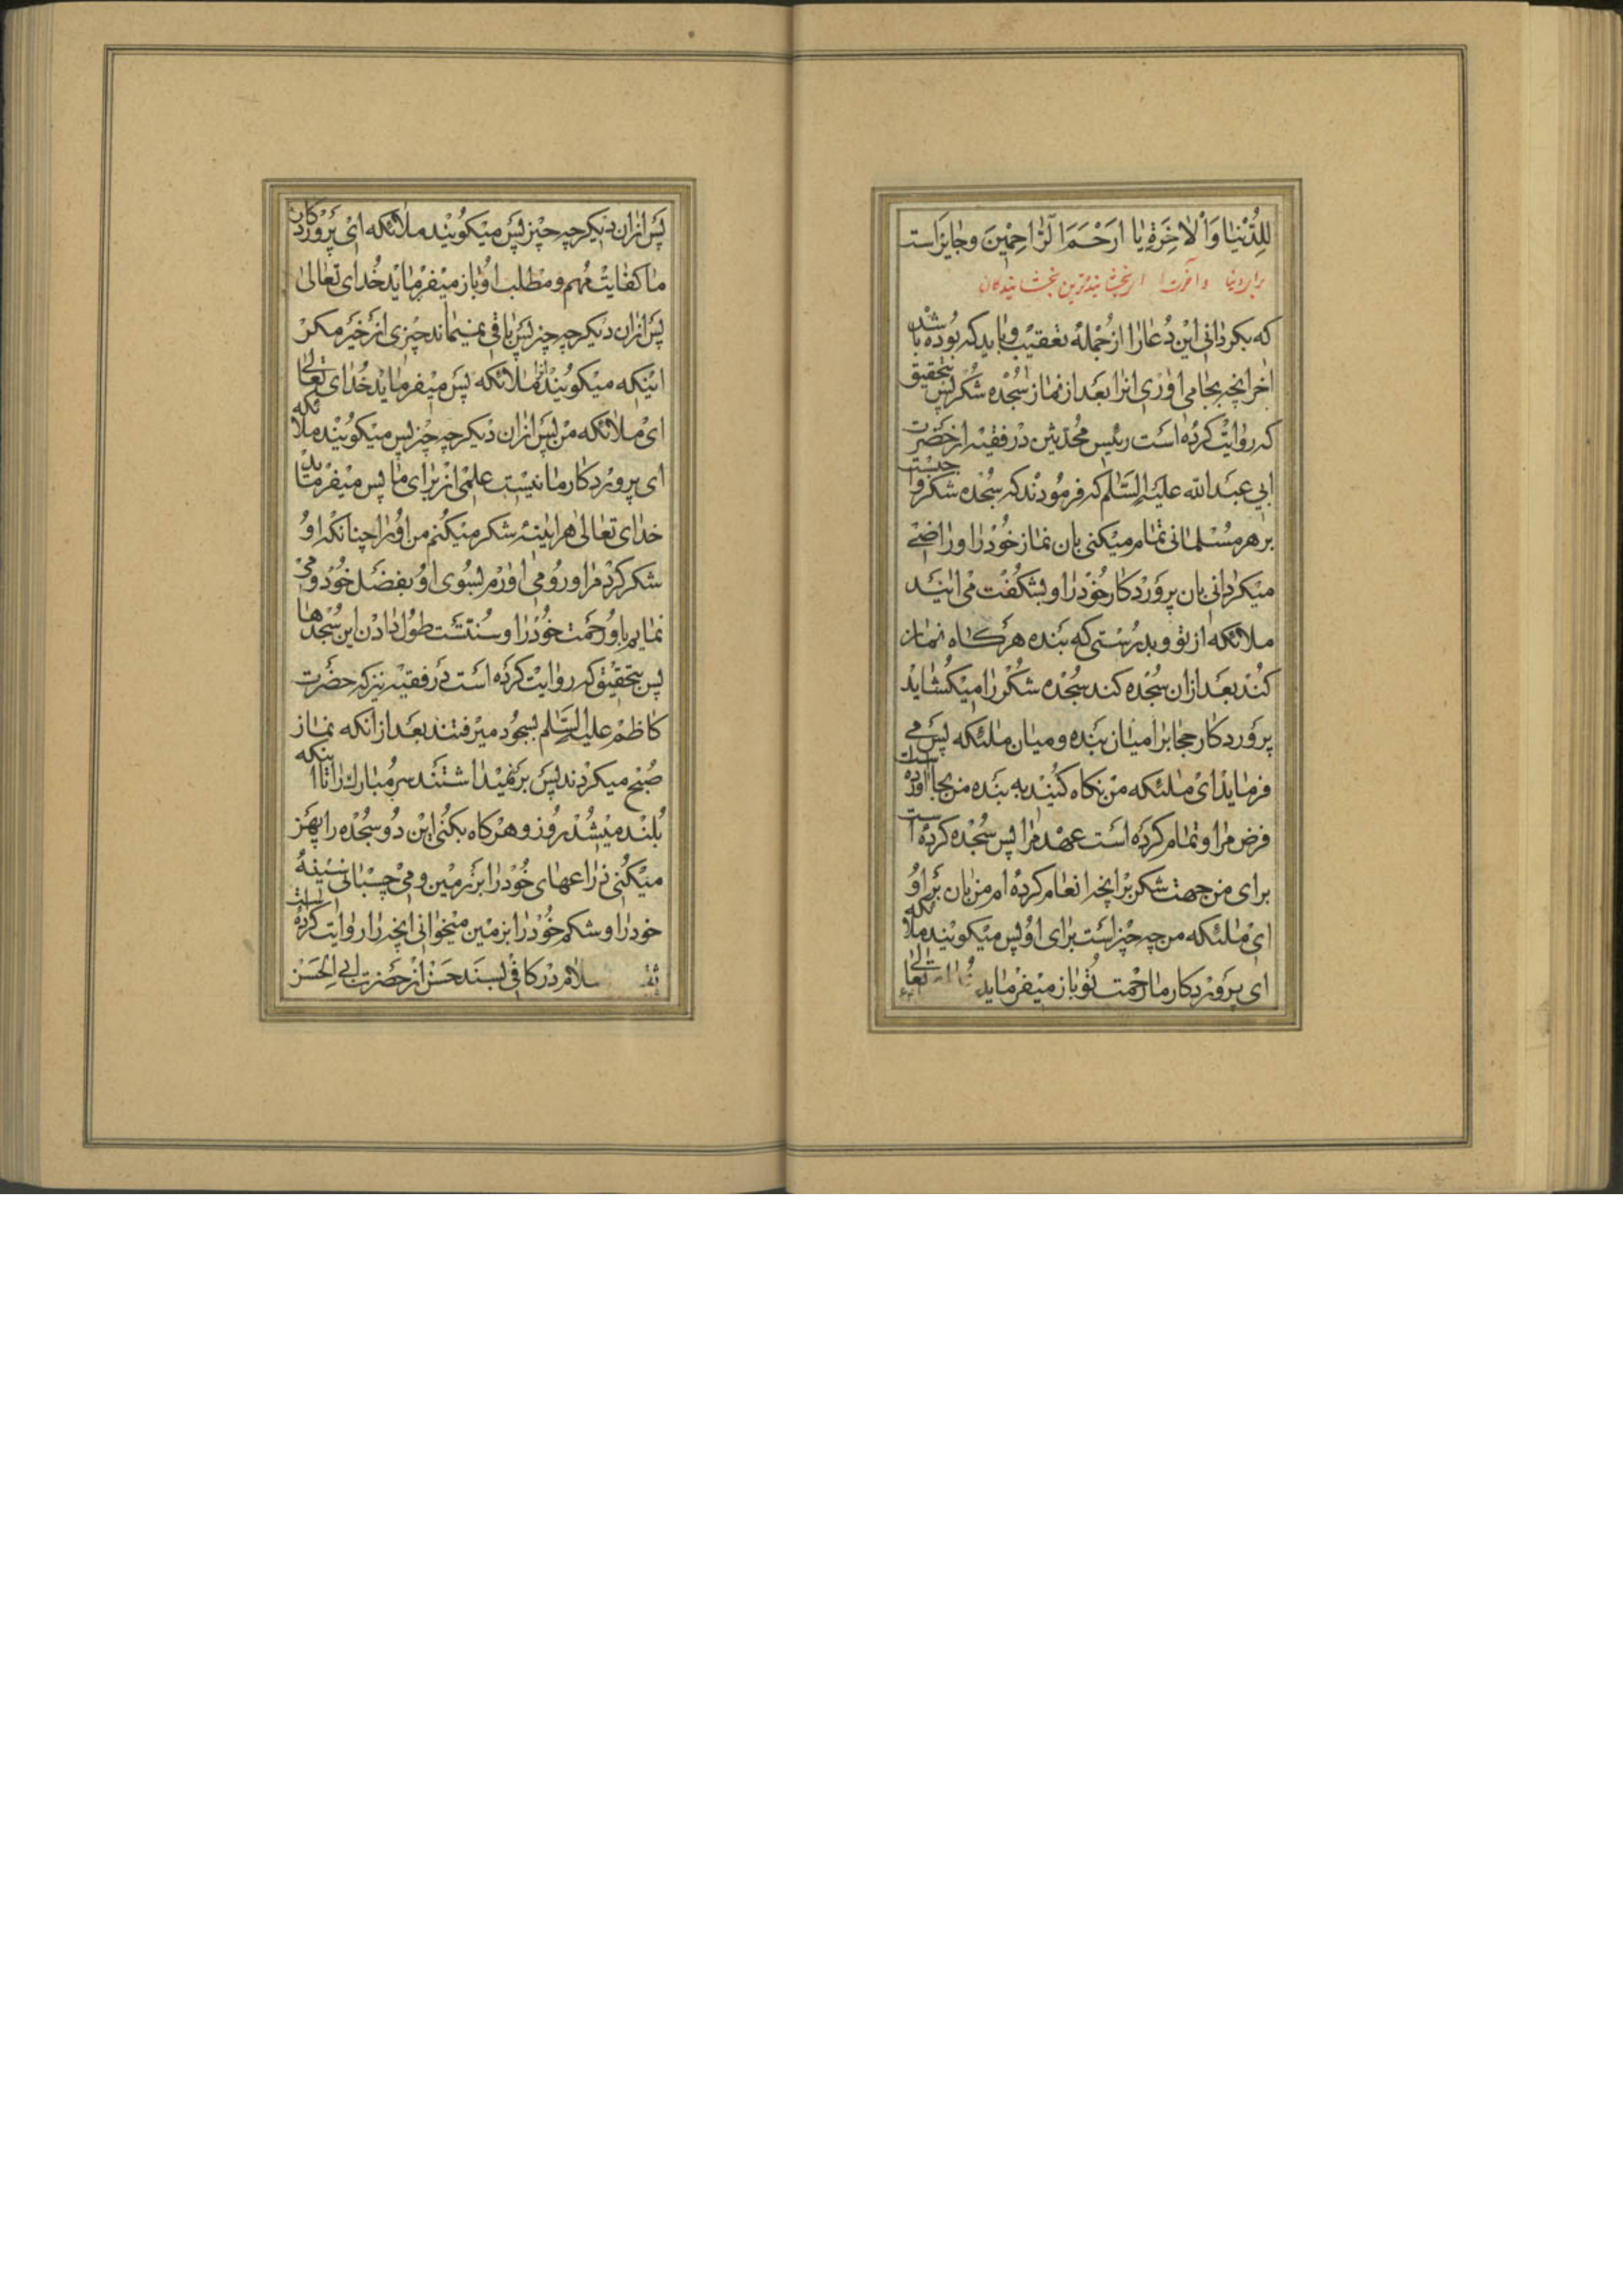 لِلدُّنْیَا وَالْاٰخِرَةِ یَا اَرْحَمَ الرَّاحِمِینَ وجایز است
برای دنیا و آخرت ای بخشاینده‌ترین بخشایندگان
که بکردانی این دعا را از جمله تعقیب و باید که بوده باشد
اخر انچه بجا می اوری انرا بعد از نماز سجده شکر پس بتحقیق
که روایت کرده است رئیس محدثین در فقیه از حضرت
ابی عبد الله علیه السلم که فرمودند که سجده شکر واجبست
بر هر مسلمانی تمام میکنی بان نماز خود را و راضی
میکردانی بان پروردکار خود را و بشکفت می ایند
ملائکه از تو و بدرستی که بنده هر کاه نماز
کند بعد ازان سجده کند سجده شکر را میکشاید
پروردکار حجابرا میان بنده و میان ملئکه پس می
فرماید ای ملئکه من نکاه کنید به بنده من بجا اورده است
فرض مرا و تمام کرده است عهد مرا پس سجده کرده است
برای من جهت شکر بر انچه انعام کرده ام من بان بر او
ای ملئکه من چه چیز است برای او پس میکویند ملائکه
ای پروردکار ما رحمت تو باز میفرماید تعالی
پس ازان دیکر چه چیز پس میکویند ملائکه ای پروردکار
ما کفایت مهم و مطلب او باز میفرماید خدای تعالی
پس ازان دیکر چه چیز پس باقی نمیماند چیزی از خیر مکر
اینکه میکویند انرا ملائکه پس میفرماید خدای تعالی
ای ملائکه من پس ازان دیکر چه چیز پس میکویند ملائکه
ای پروردکار ما نیست علمی از برای ما پس میفرماید
خدای تعالی هراینه شکر میکنم من او را چنانکه او
شکر کرد مرا و رو می اورم بسوی او بفضل خود و می
نمایم باو رحمت خود را و سنتست طول دادن این سجدها
پس بتحقیق که روایت کرده است در فقیه نیز که حضرت
کاظم علیه السلم بسجود میرفتند بعد از انکه نماز
صبح میکردند پس بر نمیداشتند سر مبارک را تا اینکه
بلند میشد روز و هر کاه بکنی این دو سجده را پهن
میکنی ذراعهای خود را بر زمین و می چسبانی سینهٔ
خود را و شکم خود را بزمین میخوانی انچه را روایت کرده است
ثقه سلام در کافی بسند حسن از حضرت ابی الحسن